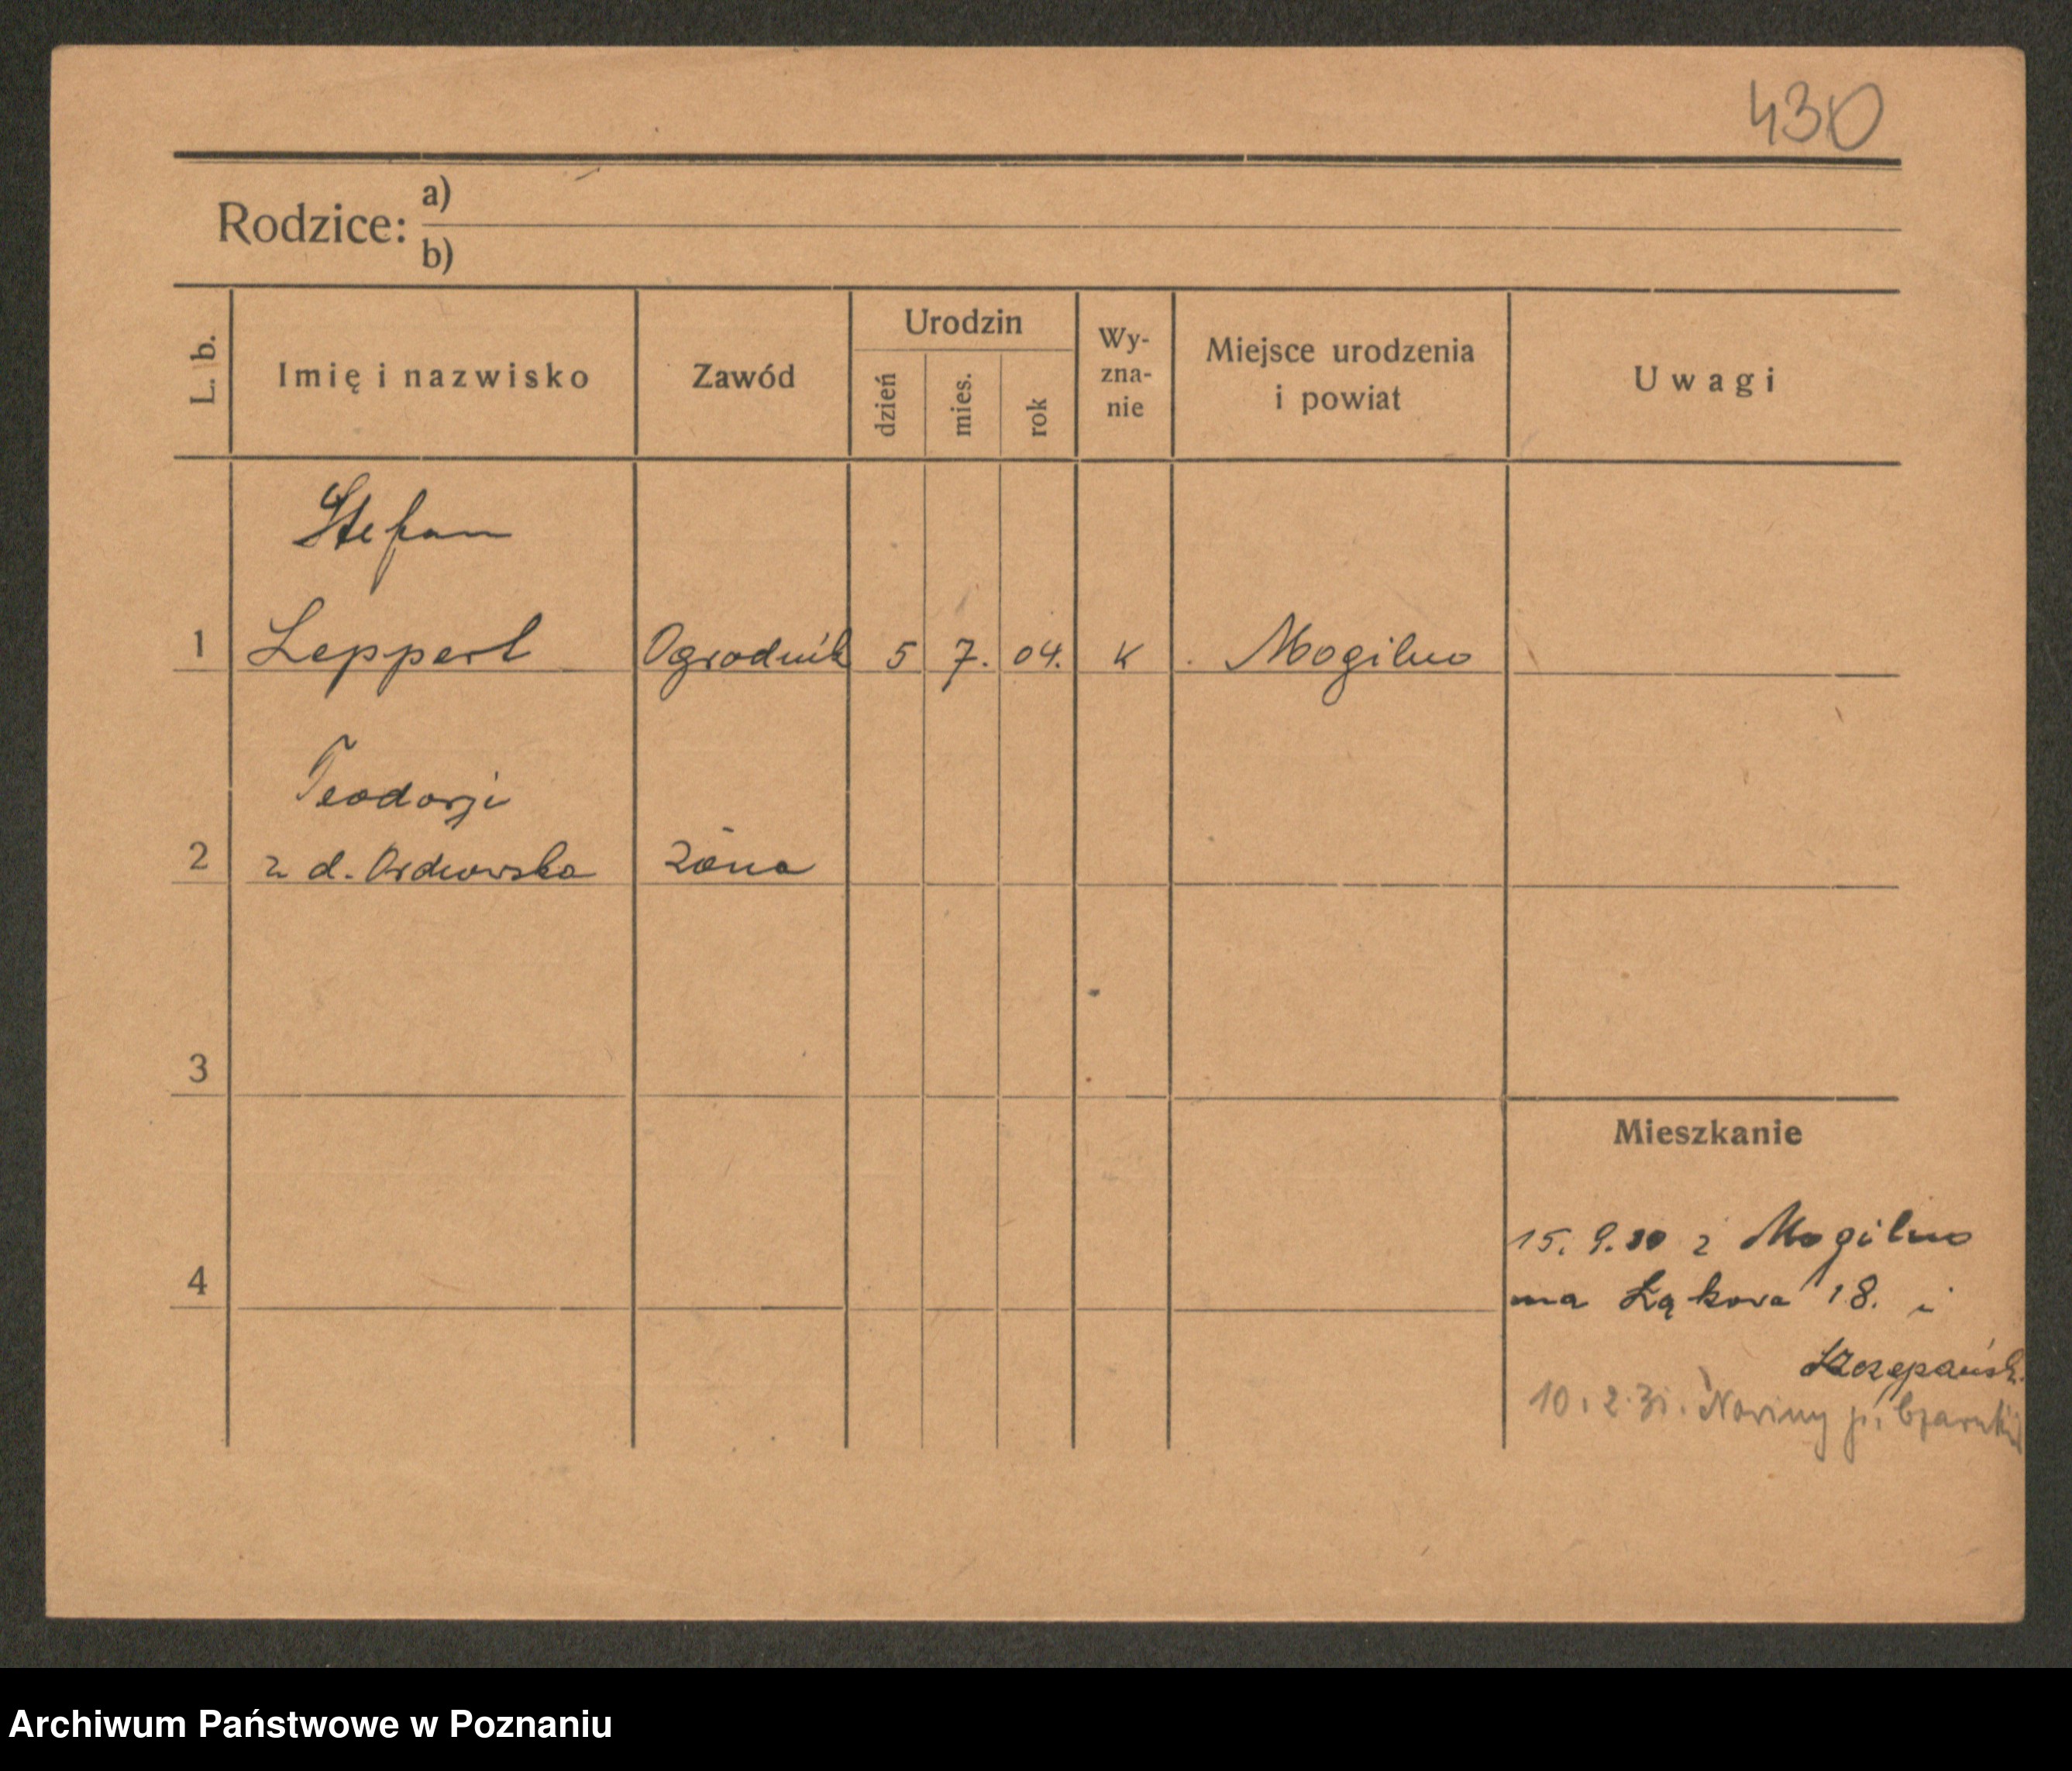 430
Rodzice: a)
b)
L. b. Imię i nazwisko Zawód Urodzin dzień mies. rok Wy-zna-nie Miejsce urodzenia i powiat Uwagi
Stefan
1 Leppert Ogrodnik 5 7. 04. K Mogilno
Teodorji
2 z d. Żona
3
Mieszkanie
15. 9. 30 z Mogilno
4 na Łąkova 18. i
Szczepańsk.
10. 2. 31. Noviny p.
Archiwum Państwowe w Poznaniu